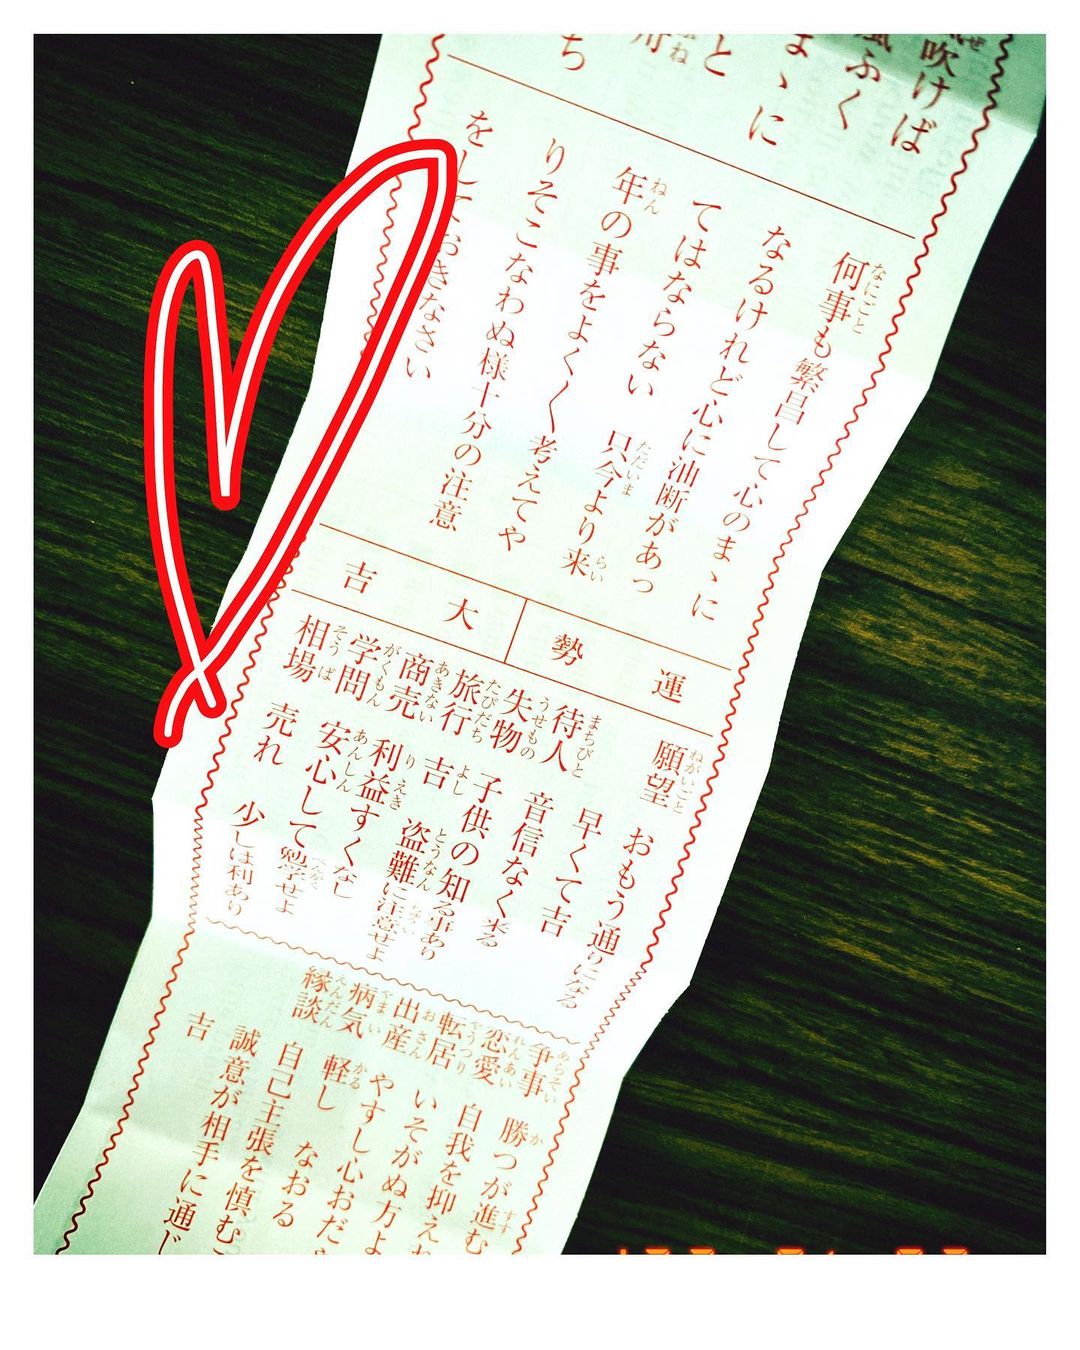 吹けば
風ふく
まゝに
と
ち
何事も繁昌して心のまゝに
なるけれど心に油断があっ
てはならない 只今より来
年の事をよく〱考えてや
りそこなわぬ様十分の注意
をしておきなさい
運勢
大吉
願望 おもう通りになる
早くて吉
待人 音信なく来る
失物 子供の知る事あり
旅行 吉 盗難に注意せよ
商売 利益すくなし
学問 安心して勉学せよ
相場 売れ 少しは利あり
争事 勝つが進む
恋愛 自我を抑えれ
転居 いそがぬ方よ
出産 やすし心おだ
病気 軽し なおる
縁談 自己主張を慎む
誠意が相手に通じ
吉